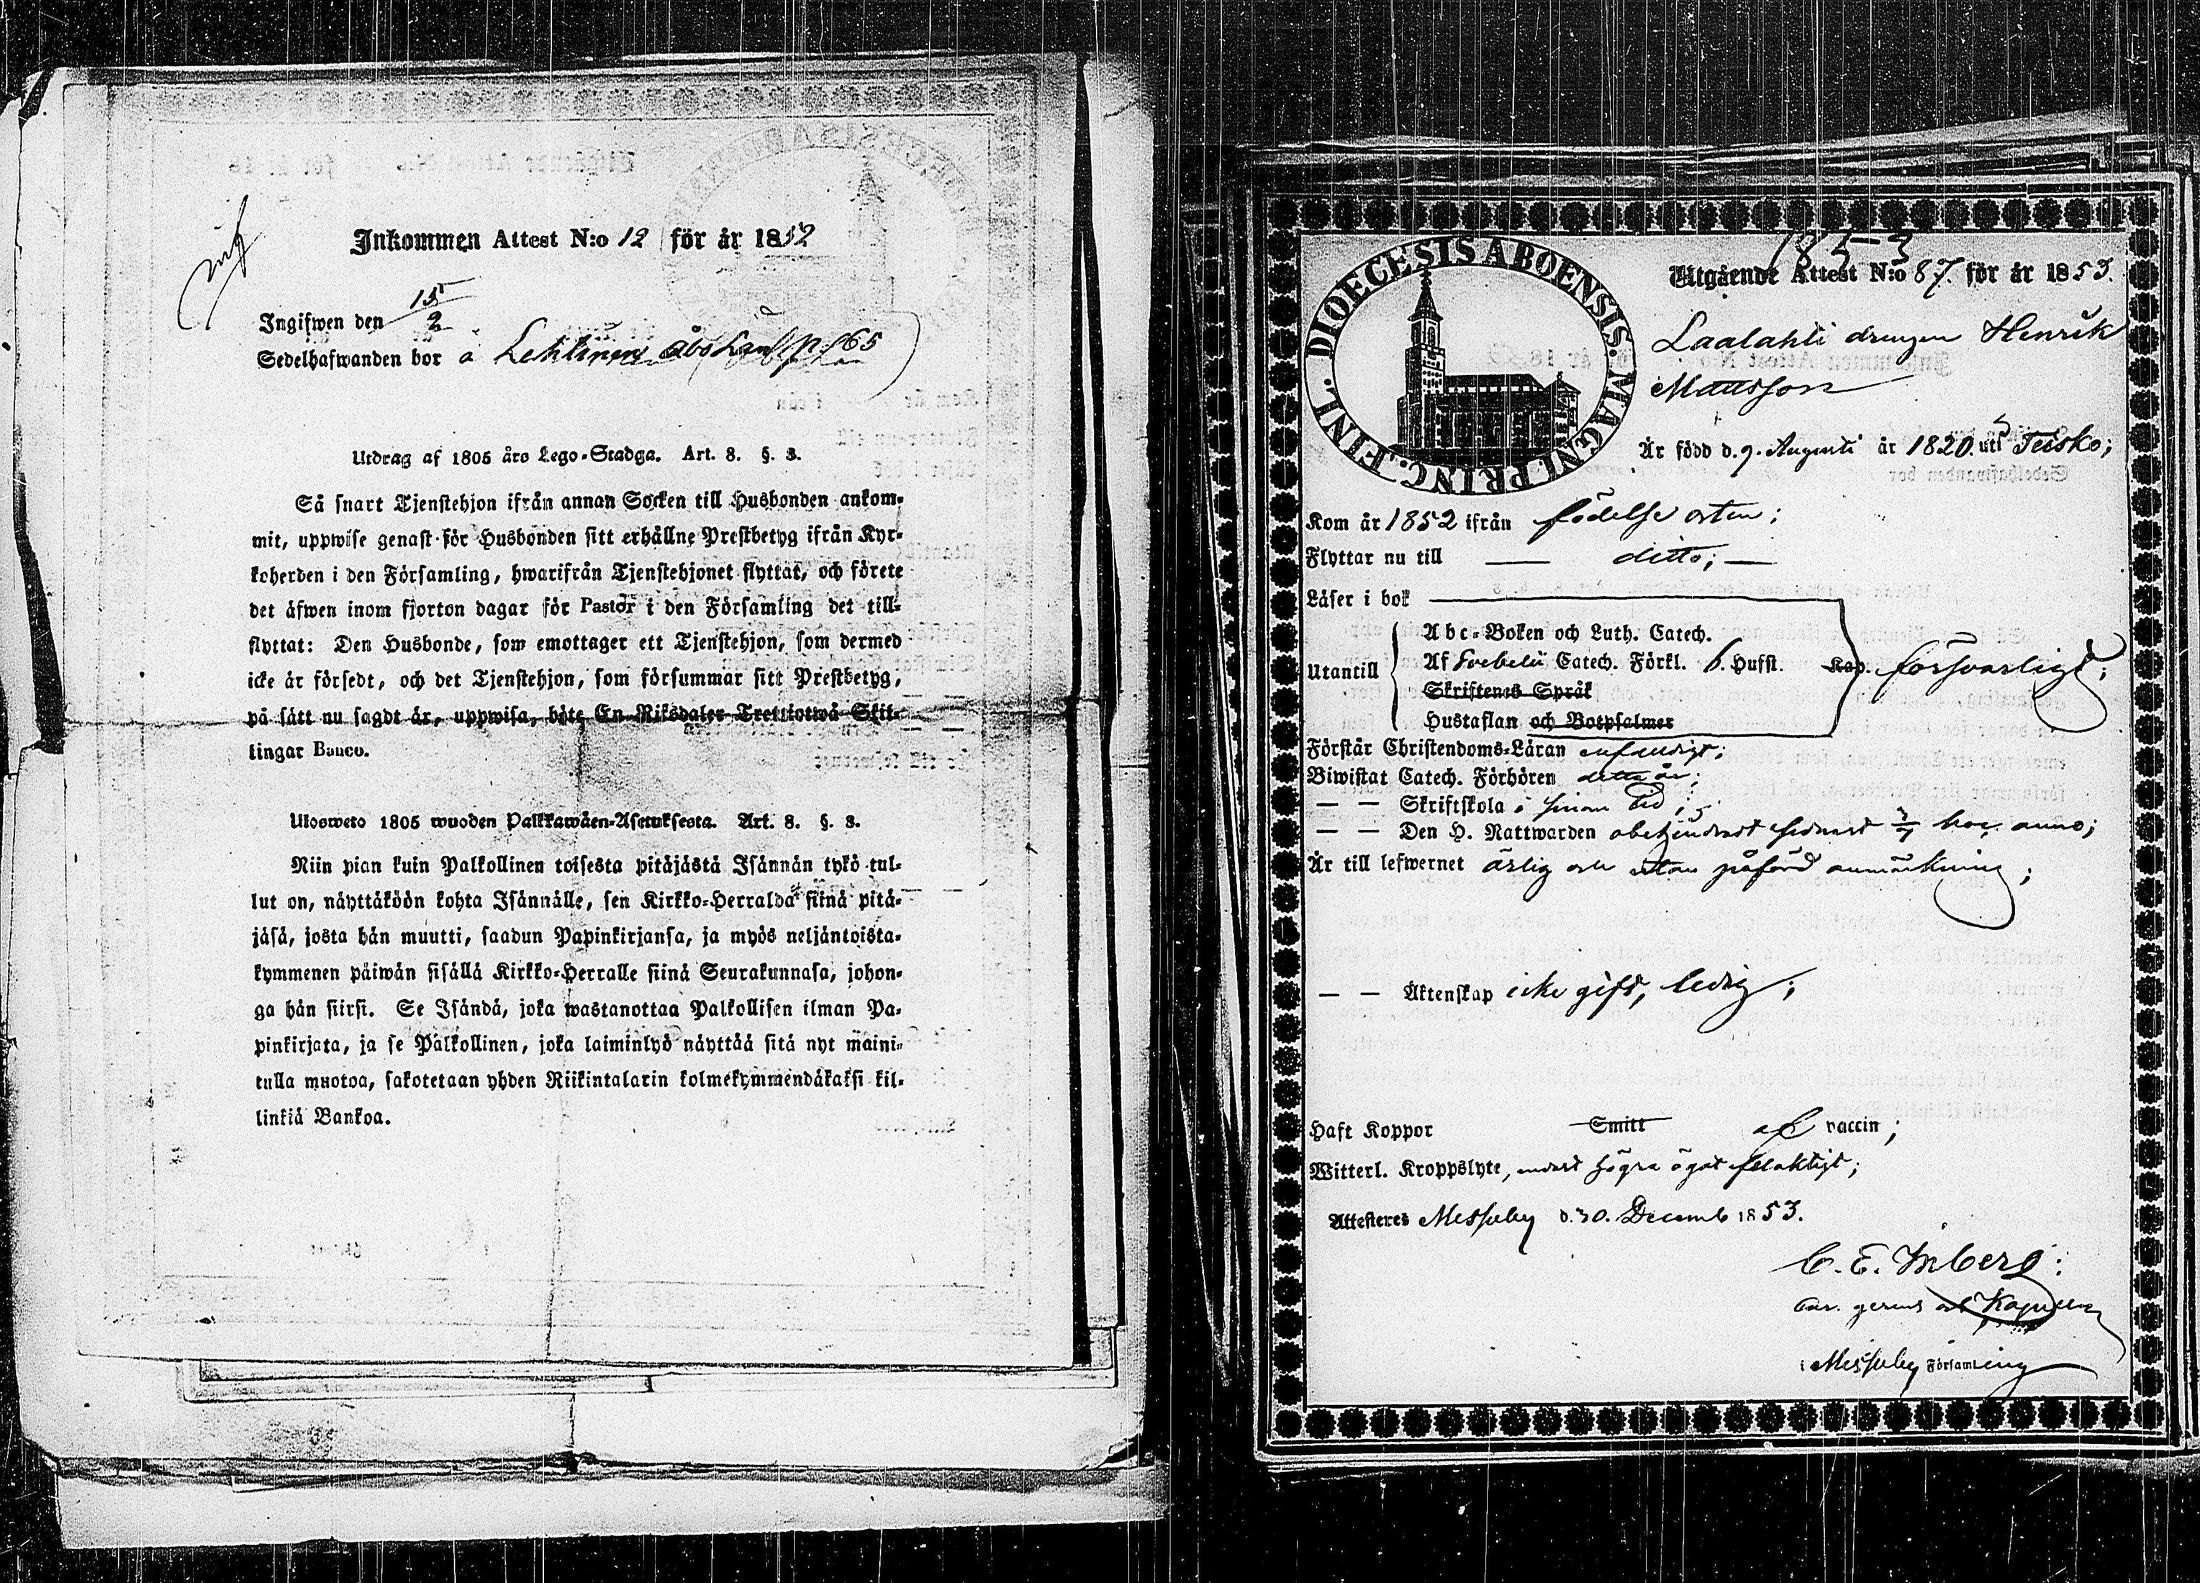 Inkommen Attest N:o 12 för år 1852
Ingifwen den 15/2
Sedelhafwanden bor å
Utdrag af 1805 års Lego-Stadga. Art. 8. §. 3.
Så snart Tjenstehjon ifrån annan Socken till Husbonden ankom-
mit, uppwise genast för Husbonden sitt erhållne Prestbetyg ifrån Kyr-
koherden i den Församling, hwarifrån Tjenstehjonet flyttat, och förete
det äfwen inom fjorton dagar för Pastor i den Församling det till-
flyttat: Den Husbonde, som emottager ett Tjenstehjon, som dermed
icke är försedt, och det Tjenstehjon, som försummar sitt Prestbetyg,
på sätt nu sagdt är, uppwisa, böte En Riksdaler Trettiotwå Skil-
lingar Banco.
Ulosweto 1805 wuoden Palkkawäen-Asetuksesta. Art. 8. §. 3.
Niin pian kuin Palkollinen toisesta pitäjästä Isännän tykö tul-
lut on, näyttäköön kohta Isännälle, sen Kirkko-Herralda siinä pitä-
jäsä, josta hän muutti, saadun Papinkirjansa, ja myös neljäntoista-
kymmenen päiwän sisällä Kirkko-Herralle siinä Seurakunnasa, johon-
ga hän siirsi. Se Isändä, joka wastanottaa Palkollisen ilman Pa-
pinkirjata, ja se Palkollinen, joka laiminlyö näyttää sitä nyt maini-
tulla muotoa, sakotetaan yhden Riikintalarin kolmekymmendäkaksi kil-
linkiä Bankoa.
DIOECESIS ABOENSIS. MAGNI PRINC. FINL.
1853
Utgående Attest N:o 87. för år 1853.
Laalahti drengen Henrik
Mattsson
Är född d. 9. Augusti år 1820. uti Teisko;
Kom år 1852 ifrån födelse orten;
Flyttar nu till — ditto; —
Läser i bok
Utantill
Abc-Boken och Luth. Catech.
Af Svebelii Catech. Förkl. 6. Hufst. Kap. försvarligt;
Skriftenes Språk
Hustaflan och Botpsalmer
Förstår Christendoms-Läran enfaldigt;
Biwistat Catech. Förhören detta år;
— — Skriftskola i sinom tid;
— — Den H. Nattwarden obehindradt senast hoc anno;
Är till lefwernet ärlig och utan påförd anmärkning;
— — Äktenskap icke gift, ledig;
Haft Koppor Smitt af vaccin;
Witterl. Kroppslyte, endast högra ögat felaktigt;
Attesteres Messuby d. 30. Decemb 1853.
C. E. Inberg:
i Messuby Församling